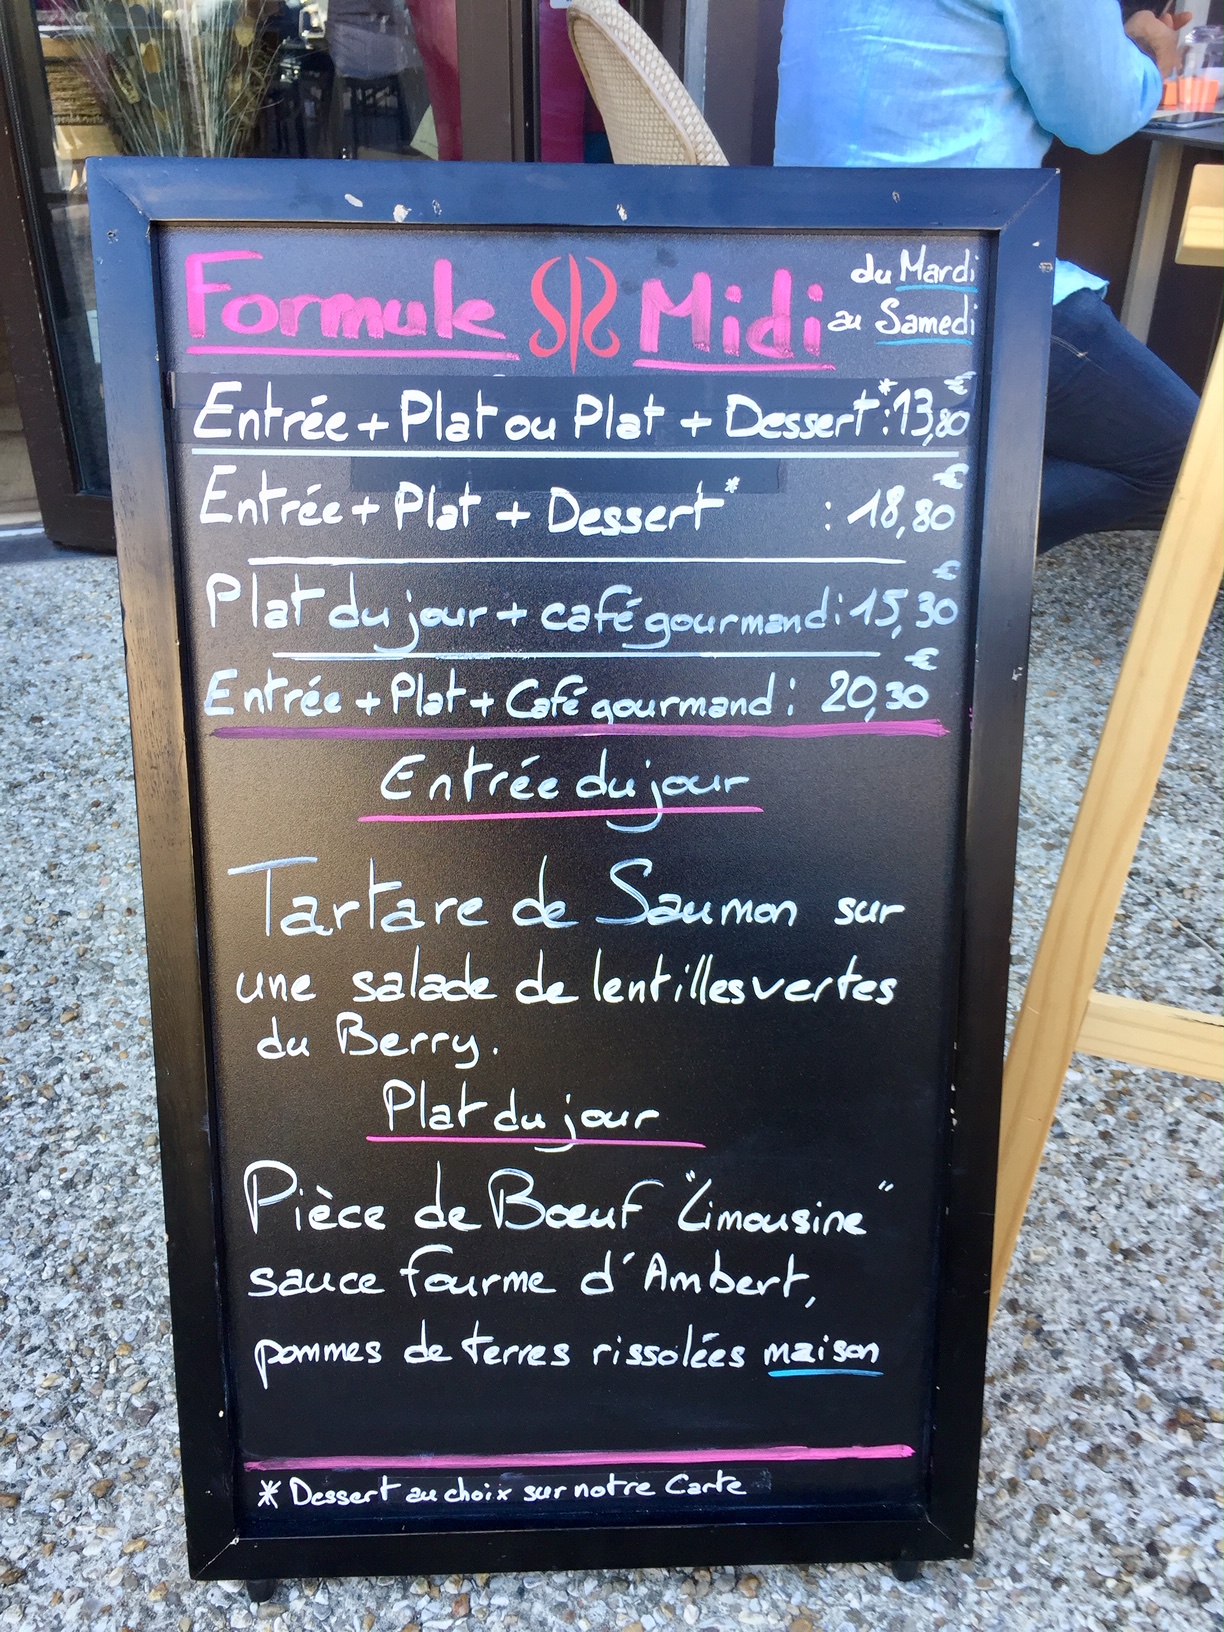 Formule Midi
du Mardi
au Samedi
Entrée + Plat ou Plat + Dessert* : 13,80 €
Entrée + Plat + Dessert* : 18,80 €
Plat du jour + café gourmand : 15,30 €
Entrée + Plat + Café gourmand : 20,30 €
Entrée du jour
Tartare de Saumon sur
une salade de lentilles vertes
du Berry.
Plat du jour
Pièce de Bœuf "Limousine"
sauce fourme d'Ambert,
pommes de terres rissolées maison
* Dessert au choix sur notre Carte